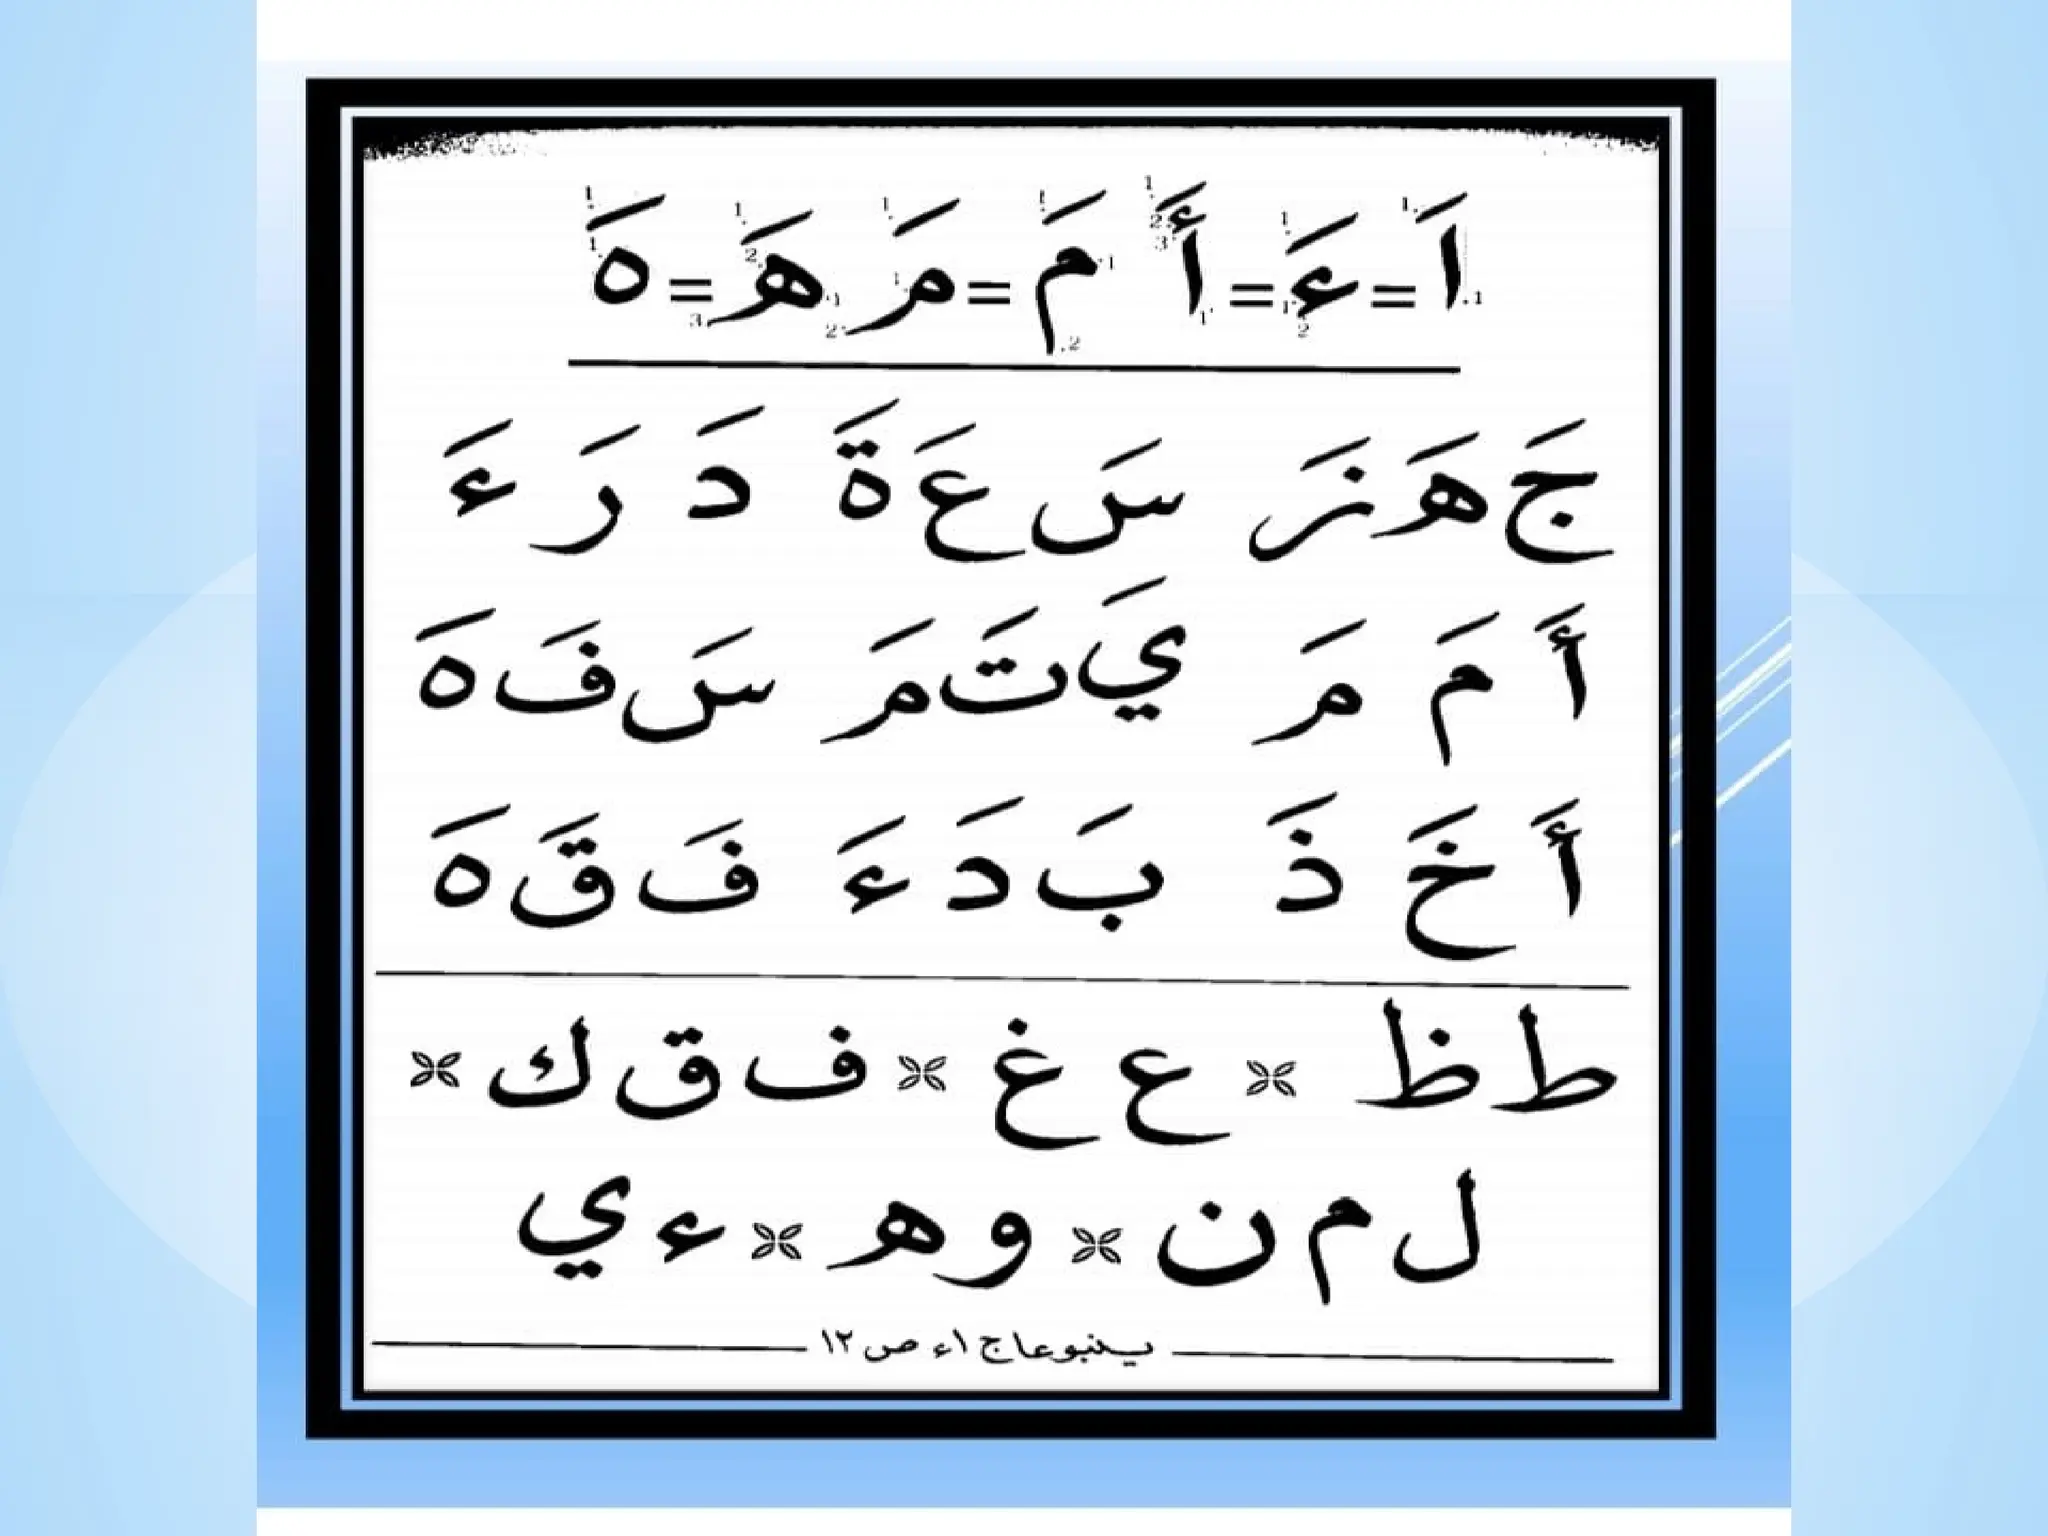 اَ = ءَ = أَ مَ = مَ هَ = هَ
جَ هَ زَ سَ عَ ةَ دَ رَ ءَ
أَ مَ مَ يَ تَ مَ سَ فَ هَ
أَ خَ ذَ بَ دَ ءَ فَ قَ هَ
ط ظ ع غ ف ق ك
ل م ن و ه ء ي
ينبوعا ج ١ء ص ١٢